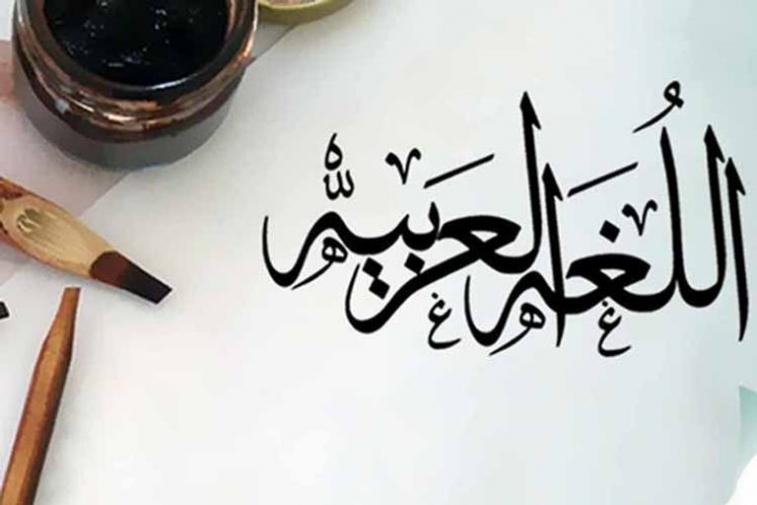 اللُغه العربيّه